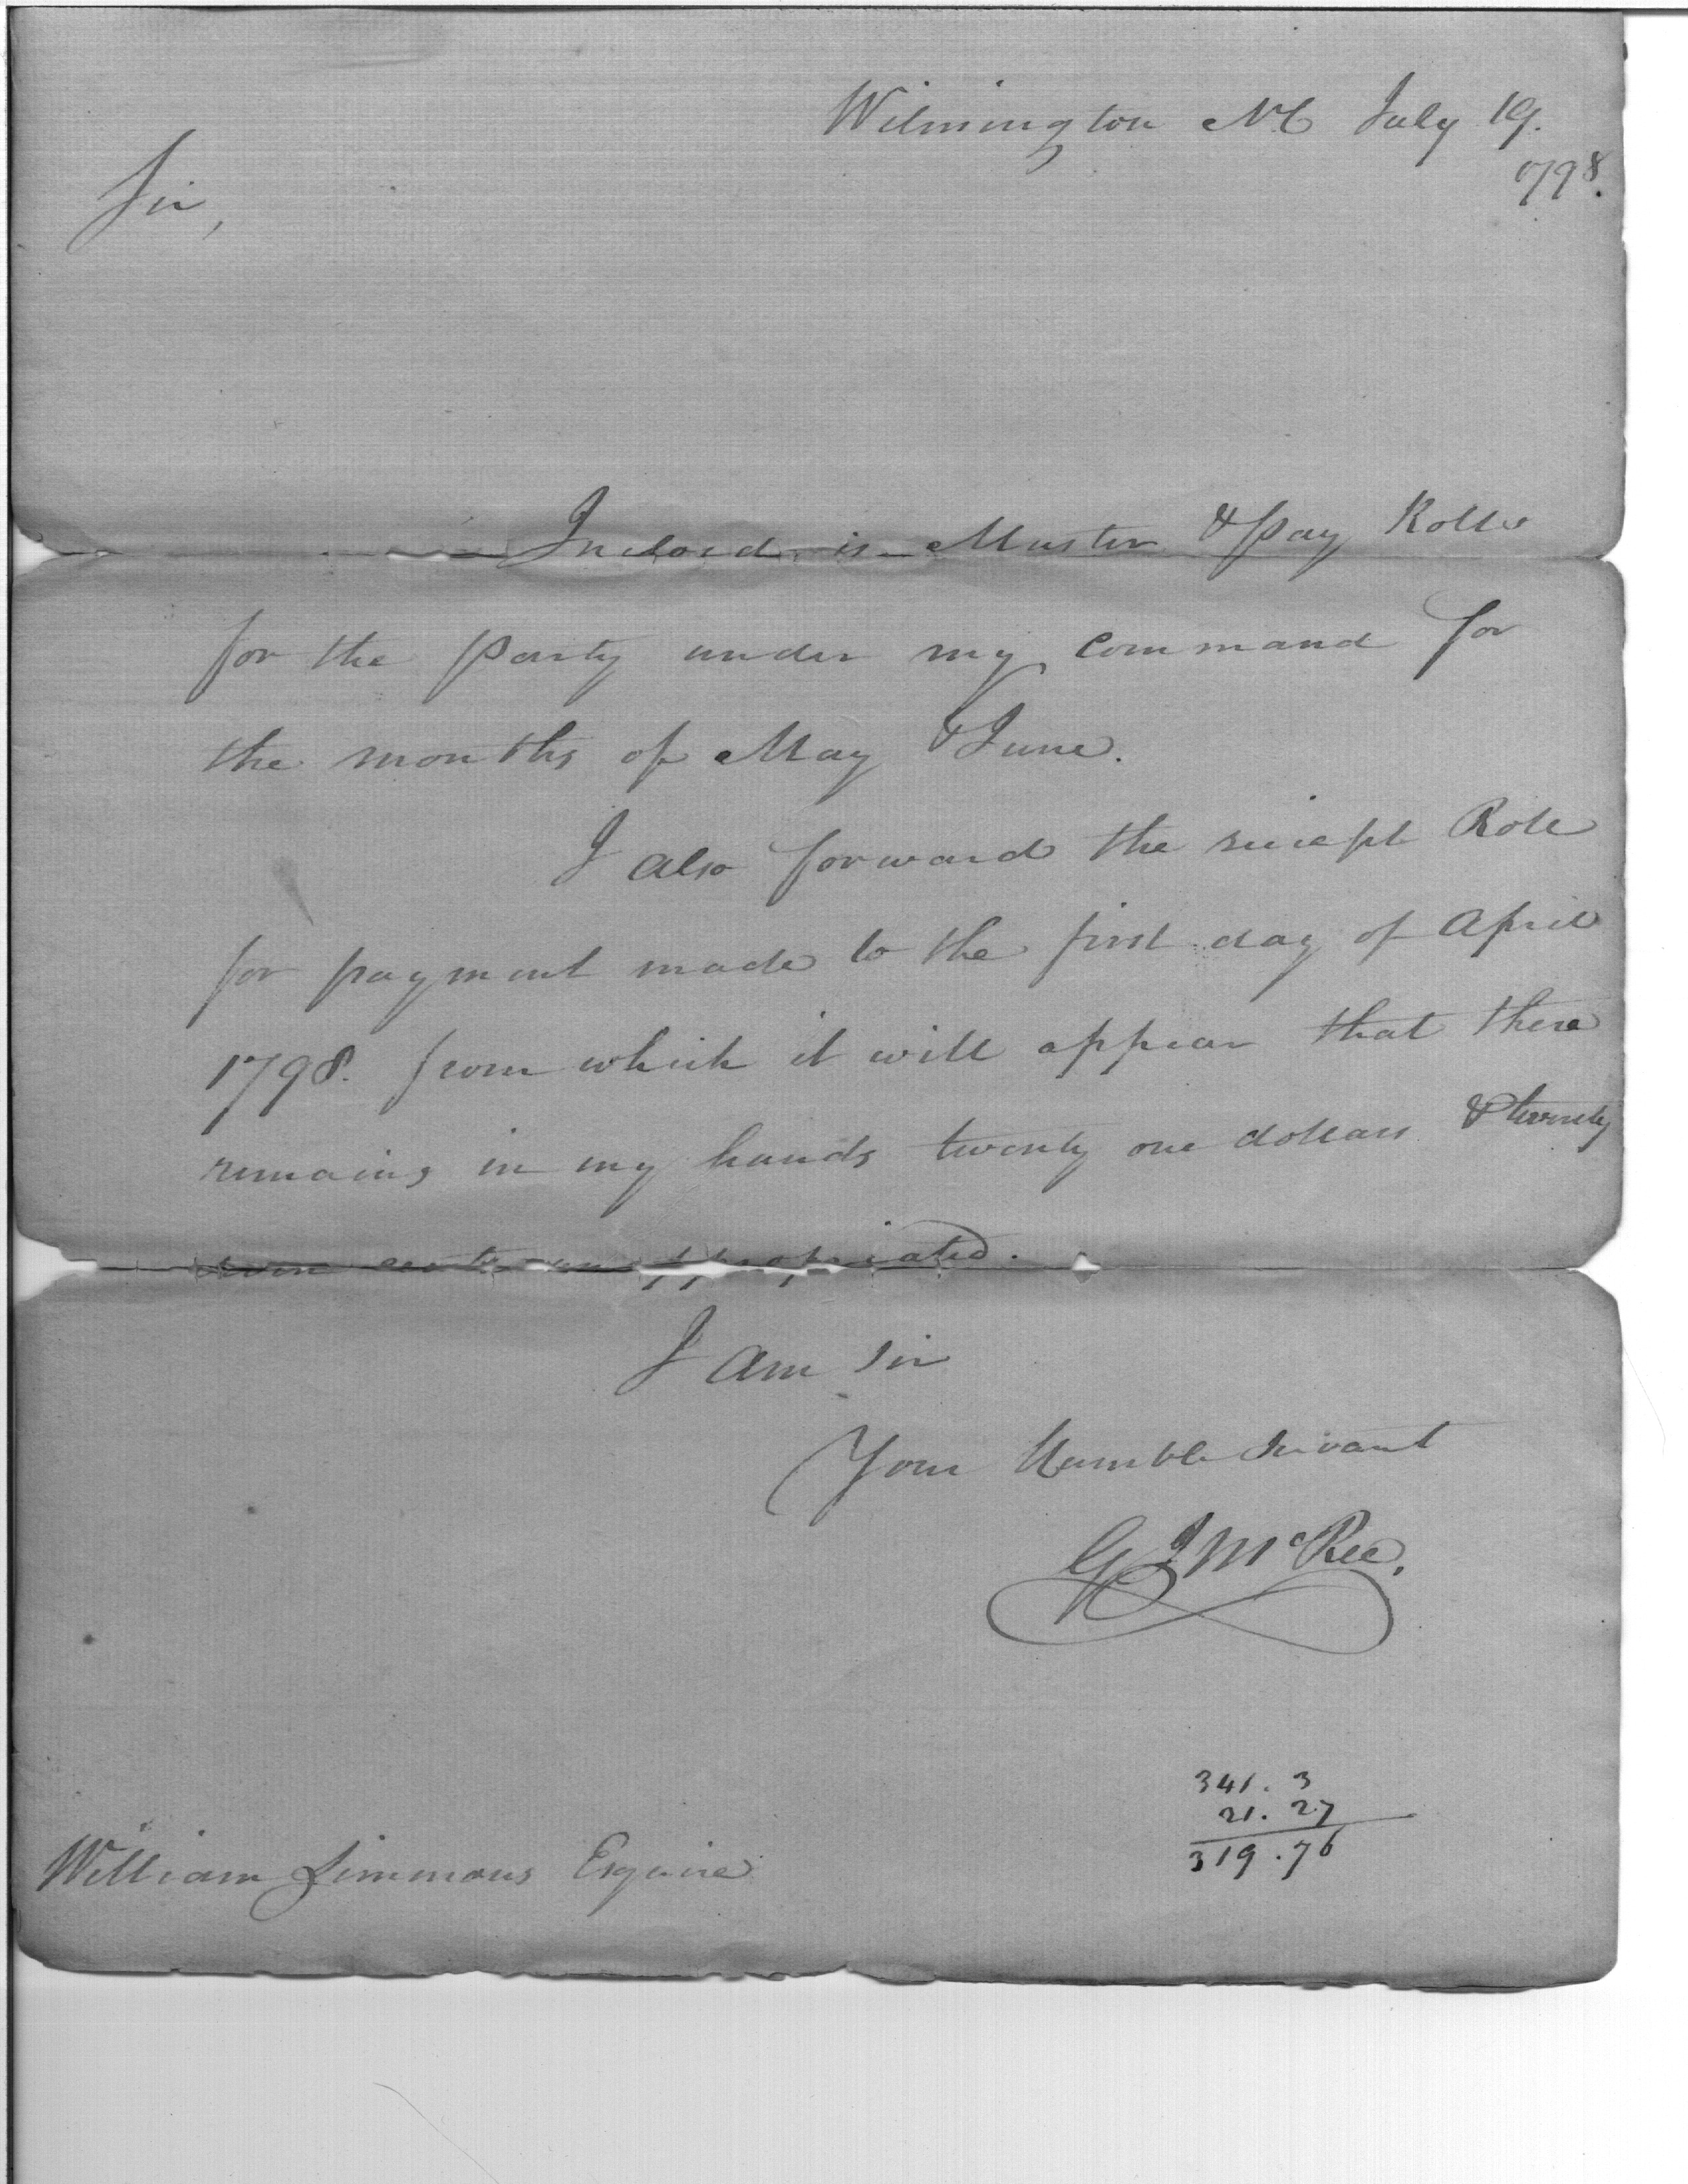 Wilmington NC July 19.
1798.
Sir,
Inclosed is Muster & Pay Rolls
for the Party under my Command for
the months of May & June.
I also forward the reciept Role
for payment made to the first day of April
1798. from which it will appear that there
remains in my hands twenty one dollars & twenty
seven cents unappropriated.
I am Sir
Your Humble Servant
G J McRee.
341. 3
21. 27
319. 76
William Simmons Esquire